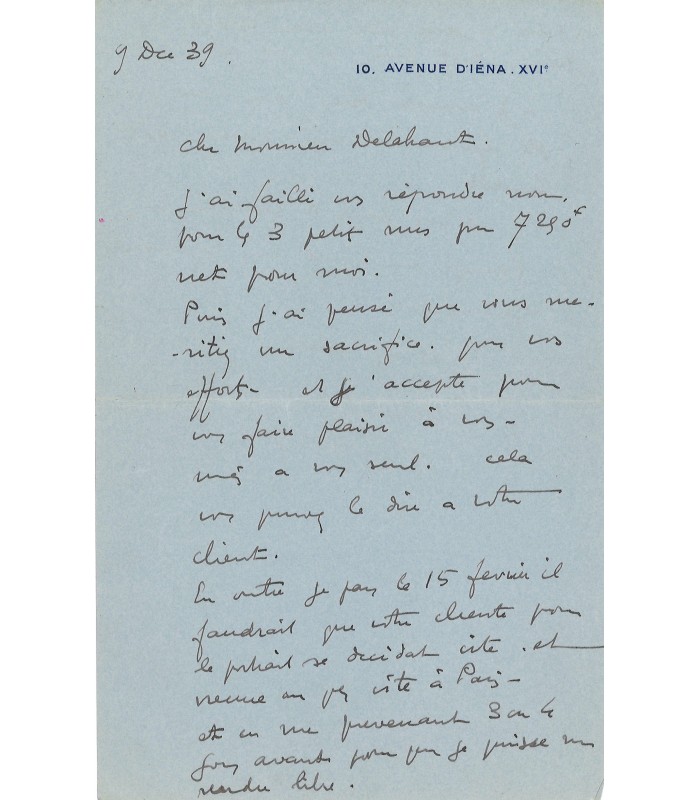 9 Dec 39.
10. AVENUE D'IÉNA. XVIᵉ
Cher Monsieur Delahaut.
J'ai failli vs répondre non,
pour le 3 petit nus pr 7250 f
net pour moi.
Puis j'ai pensé que vous mé-
-ritiez un sacrifice. pour vos
efforts - et je l'accepte pour
vos faire plaisir à vos-
même a vos seul. cela
vos pouvez le dire a votre
client.
En outre je pars le 15 fevrier il
faudrait que votre cliente pour
le portrait se decidat vite. et
vienne au plus vite à Paris -
et en me prevenant 3 ou 4
jours avant pour que je puisse me
rendre libre.